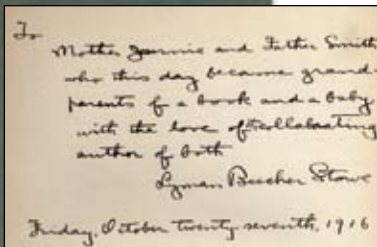 To
Mother Jennie and Father Smith
who this day became grand-
parents of a book and a baby
with the love of the collaborating
author of both
Lyman Beecher Stowe
Friday, October twenty seventh, 1916